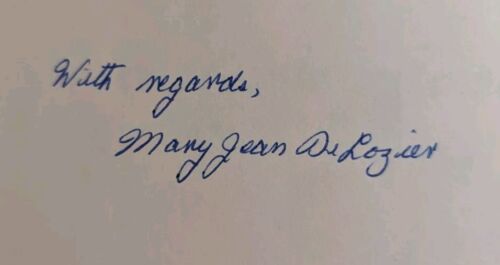 With regards,
Mary Jean DeLozier